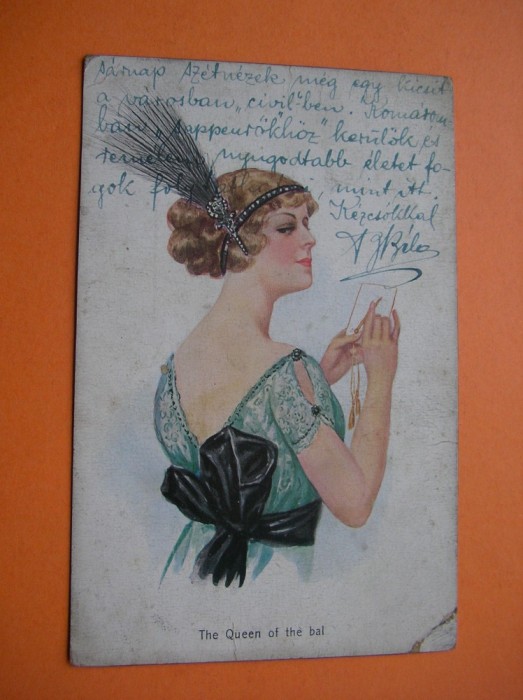 Várnap Szétnézek még egy kicsit
a városban „civil"-ben. Komárom-
ban „Sappeurökhöz" kerülök és
remélem nyugodtabb életet fo-
gok folytatni, mint itt.
Kézcsókkal
Béla
The Queen of the bal